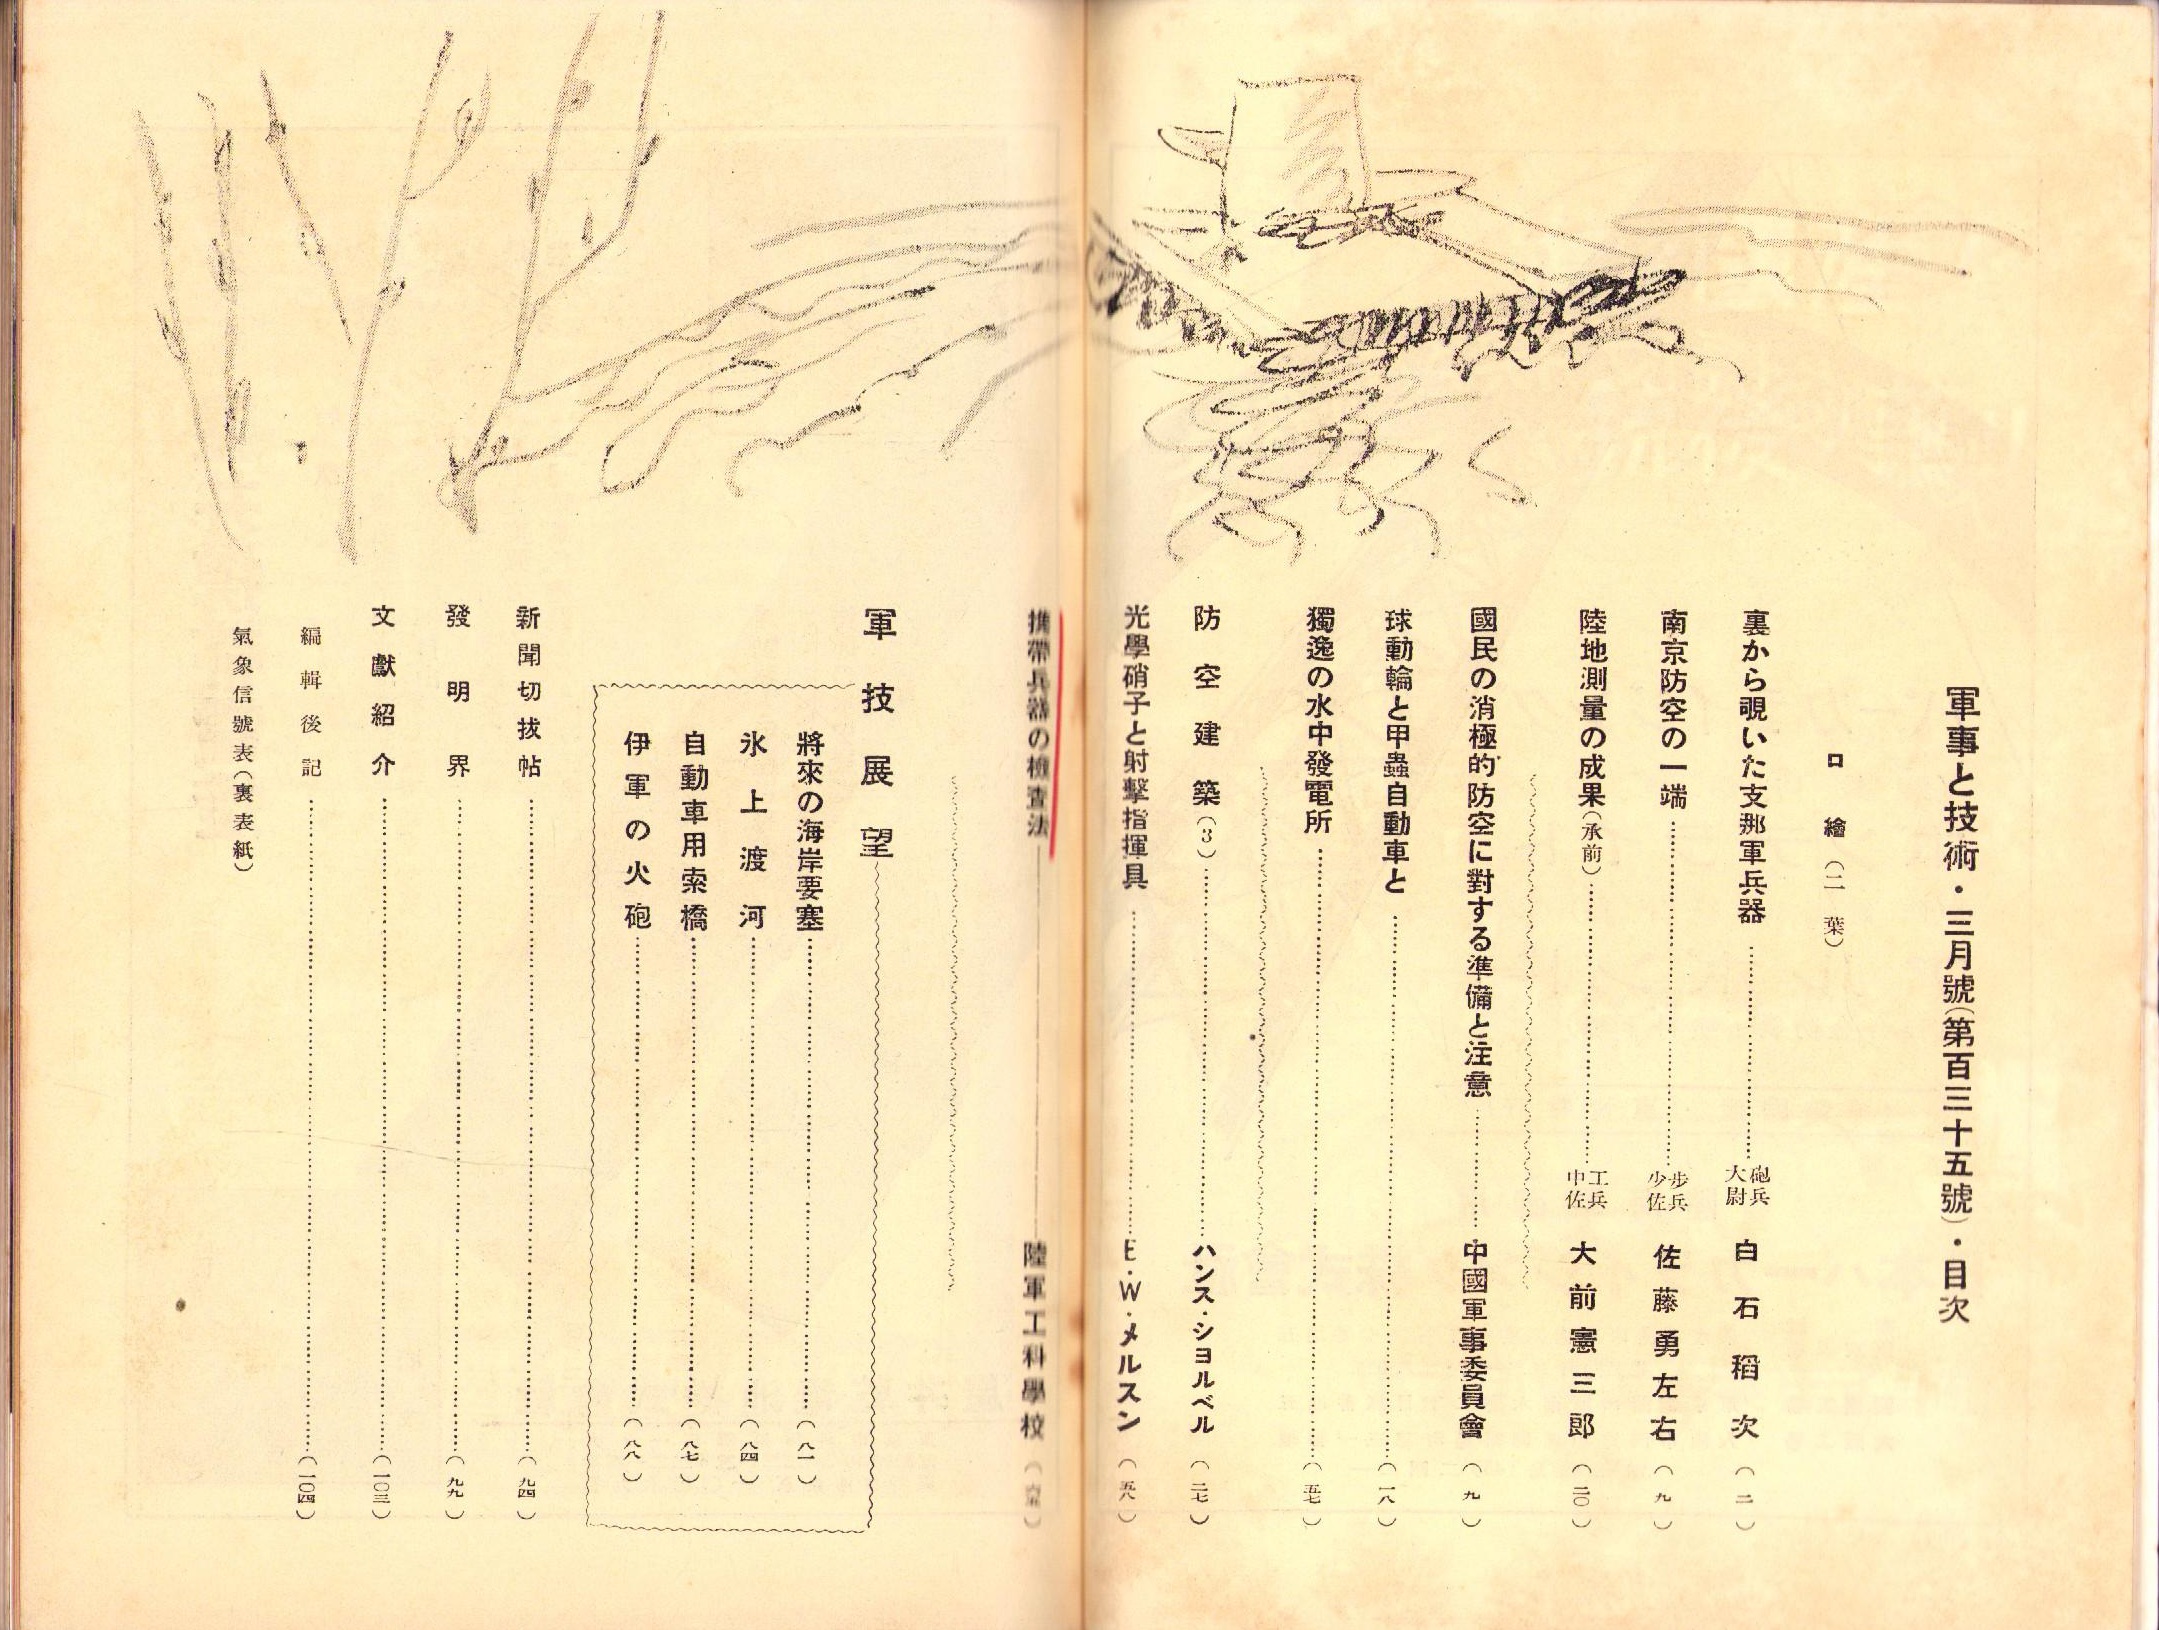 軍事と技術・三月號(第百三十五號)・目次
口繪(二葉)
裏から覗いた支那軍兵器 砲兵大尉 白石稻次(二)
南京防空の一端 步兵少佐 佐藤勇左右(九)
陸地測量の成果(承前) 工兵中佐 大前憲三郎(二〇)
國民の消極的防空に對する準備と注意 中國軍事委員會(九)
球動輪と甲蟲自動車と(一八)
獨逸の水中發電所(五七)
防空建築(3) ハンス・シヨルベル(二七)
光學硝子と射擊指揮具 E・W・メルスン(五八)
携帶兵器の檢査法 陸軍工科學校
軍技展望
將來の海岸要塞(八一)
氷上渡河(八四)
自動車用索橋(八七)
伊軍の火砲(八八)
新聞切拔帖(九四)
發明界(九九)
文獻紹介(一〇三)
編輯後記(一〇四)
氣象信號表(裏表紙)